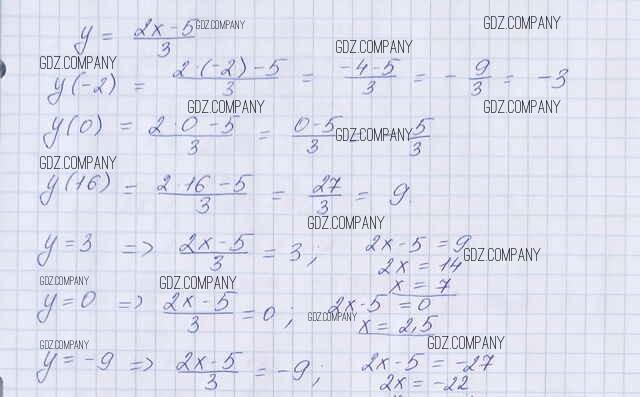 y = (2x - 5)/3 GDZ.COMPANY GDZ.COMPANY
GDZ.COMPANY GDZ.COMPANY
y(-2) = (2·(-2) - 5)/3 = (-4-5)/3 = -9/3 = -3
GDZ.COMPANY GDZ.COMPANY
y(0) = (2·0 - 5)/3 = (0-5)/3 GDZ.COMPANY 5/3
GDZ.COMPANY
y(16) = (2·16 - 5)/3 = 27/3 = 9.
GDZ.COMPANY
y = 3 => (2x-5)/3 = 3; 2x-5 = 9
2x = 14 GDZ.COMPANY
x = 7
GDZ.COMPANY GDZ.COMPANY
y = 0 => (2x-5)/3 = 0; 2x-5 = 0
GDZ.COMPANY x = 2,5
GDZ.COMPANY GDZ.COMPANY
y = -9 => (2x-5)/3 = -9; 2x-5 = -27
2x = -22